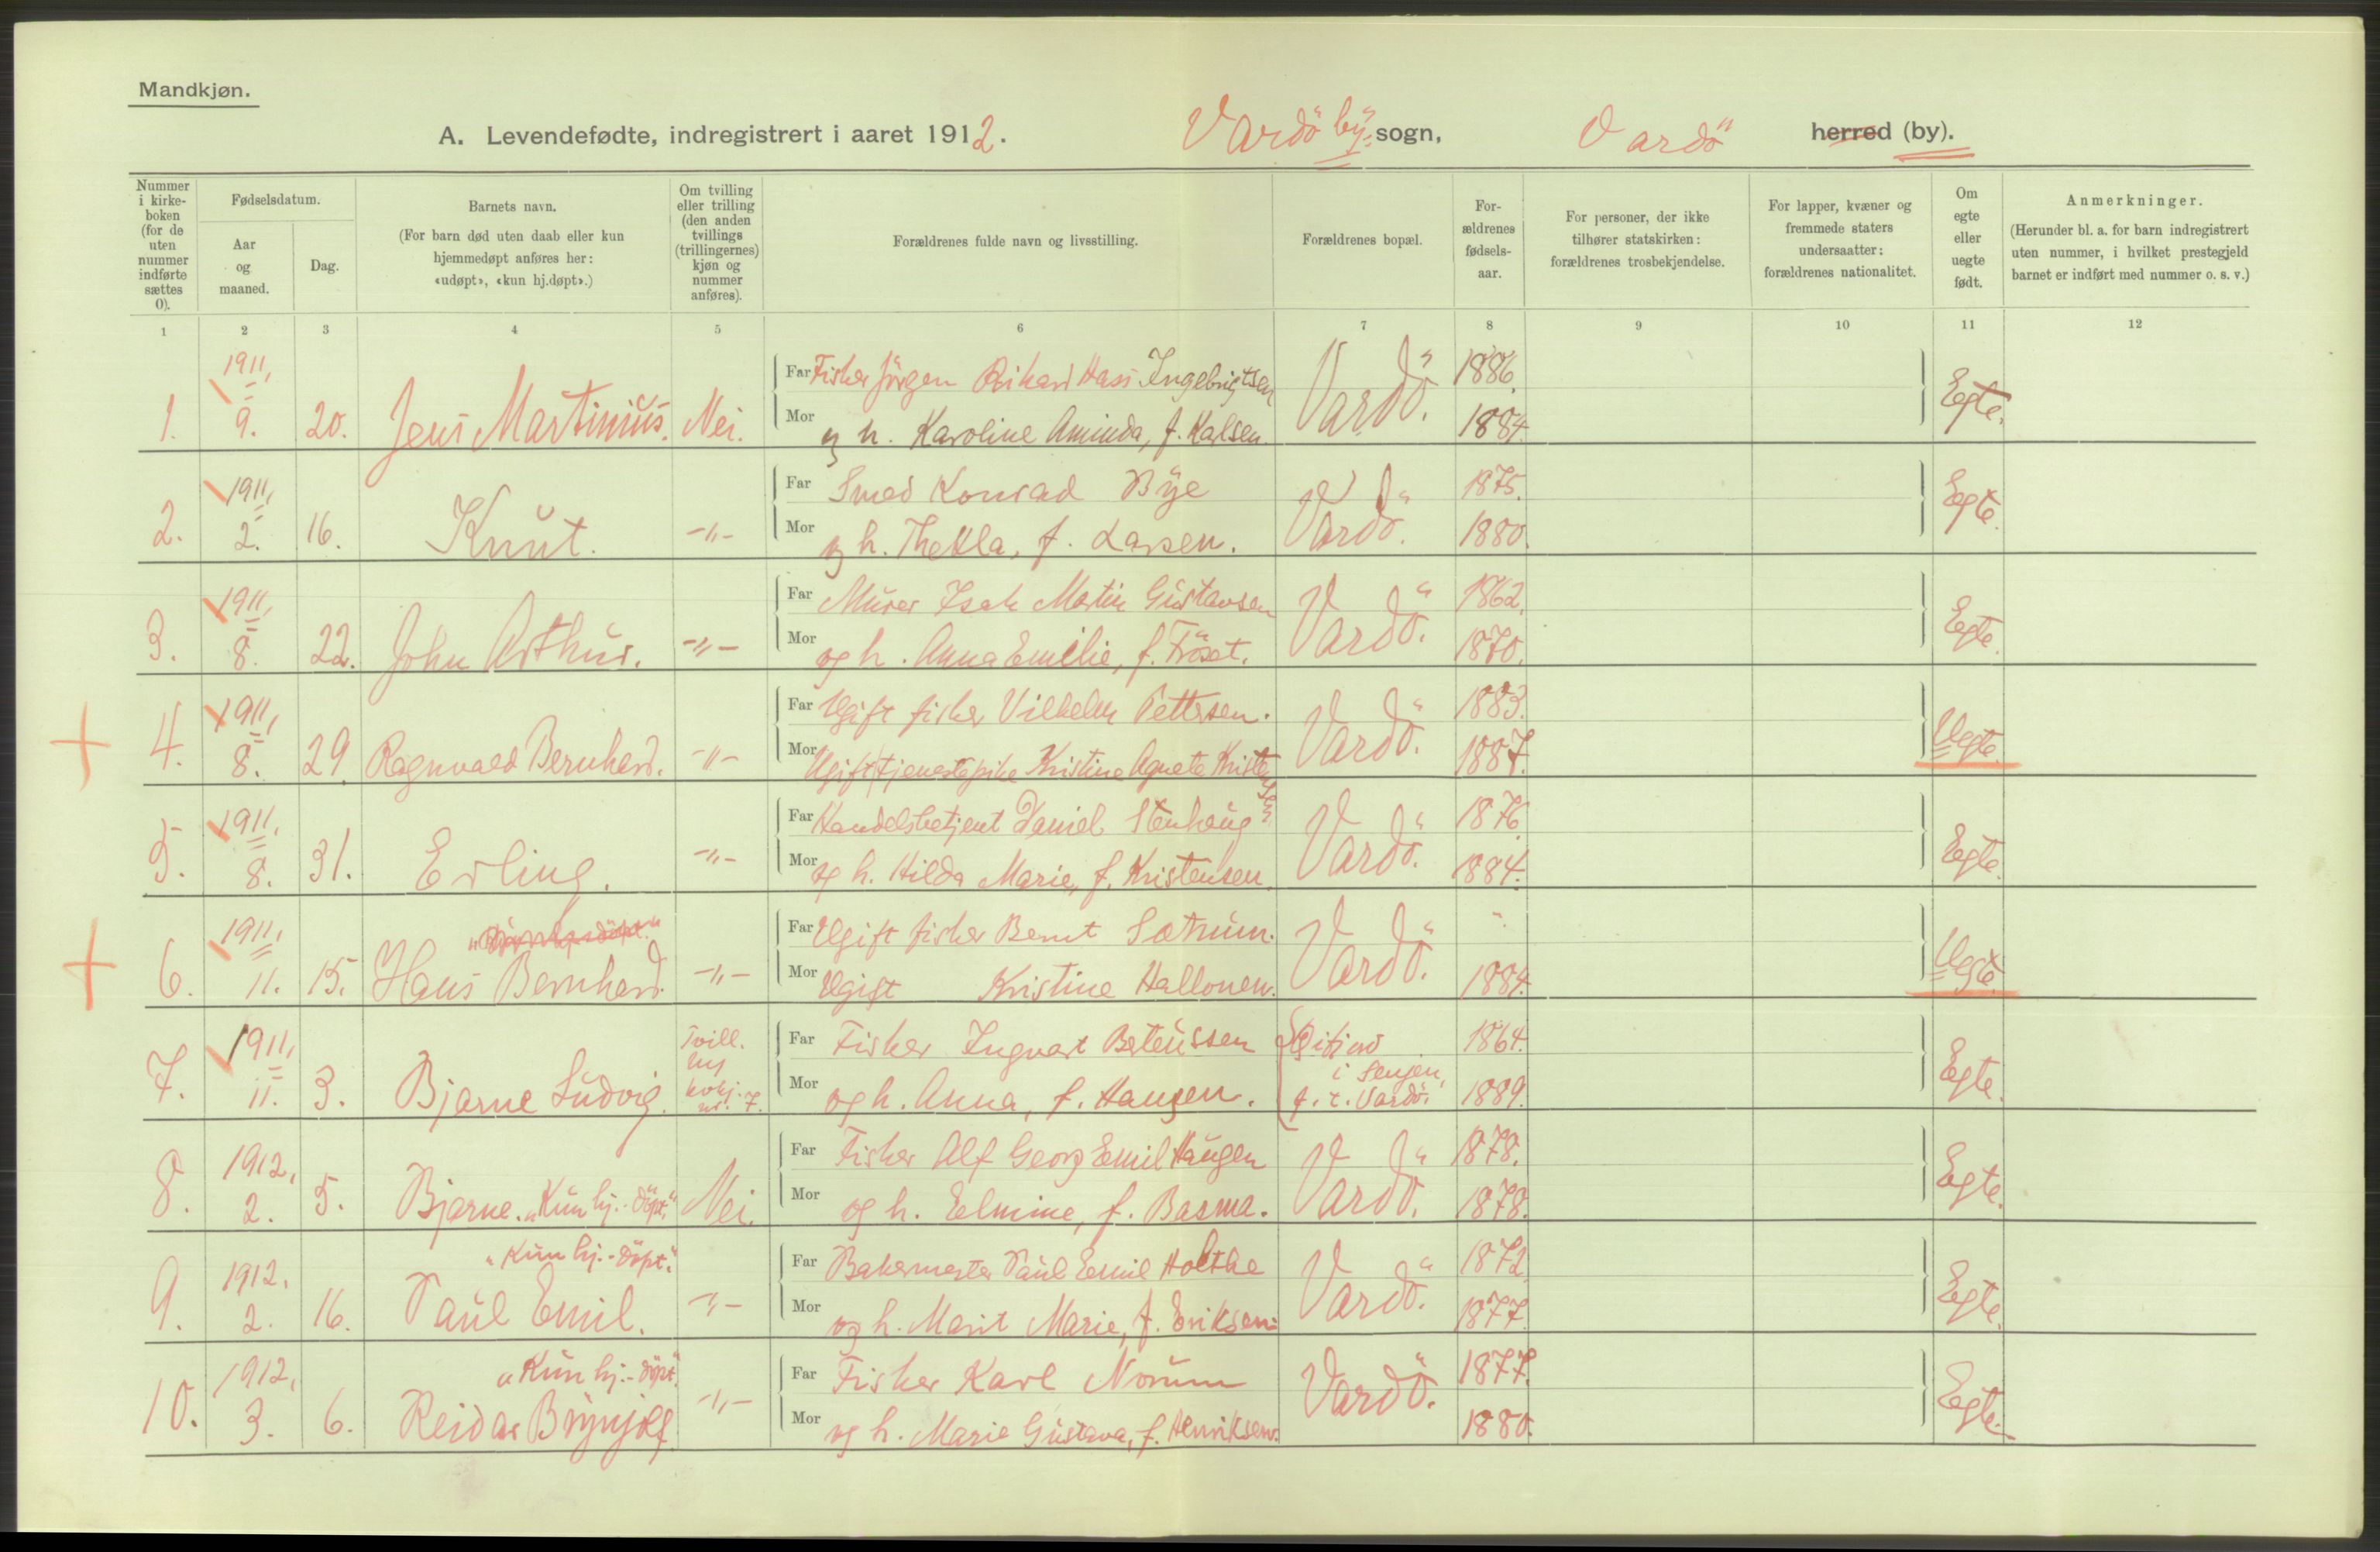 Mandkjøn.
A. Levendefødte, indregistrert i aaret 1912. Vardö by sogn, Vardö herred (by).
Nummer i kirke-boken (for de uten nummer indførte sættes 0).
Fødselsdatum.
Aar og maaned.
Dag.
Barnets navn.
(For barn død uten daab eller kun hjemmedøpt anføres her: «udøpt», «kun hj.døpt».)
Om tvilling eller trilling (den anden tvillings (trillingernes) kjøn og nummer anføres).
Forældrenes fulde navn og livsstilling.
Forældrenes bopæl.
For-ældrenes fødsels-aar.
For personer, der ikke tilhører statskirken: forældrenes trosbekjendelse.
For lapper, kvæner og fremmede staters undersaatter: forældrenes nationalitet.
Om egte eller uegte født.
Anmerkninger.
(Herunder bl. a. for barn indregistrert uten nummer, i hvilket prestegjeld barnet er indført med nummer o. s. v.)
1 2 3 4 5 6 7 8 9 10 11 12
1. 1911, 9. 20. Jens Martinius. Nei.
Far Fisker Jörgen Rikard Hass Ingebrigtsen Vardö. 1886.
Mor og h. Karoline Aminda, f. Karlsen 1884. Egte.
2. 1911, 2. 16. Knut. -"-
Far Smed Konrad Bye Vardö. 1875.
Mor og h. Thekla, f. Larsen. 1880. Egte.
3. 1911, 8. 22. John Arthur. -"-
Far Murer Isak Martin Gustavsen Vardö. 1862.
Mor og h. Anna Emilie, f. Fröset. 1870. Egte.
+ 4. 1911, 8. 29. Ragnvald Bernhard. -"-
Far Ugift fisker Vilhelm Pettersen. Vardö. 1883.
Mor Ugift tjenestepike Kristine Agnete Kristensen 1887. Uegte.
5. 1911, 8. 31. Erling. -"-
Far Handelsbetjent Daniel Stenhaug Vardö. 1876.
Mor og h. Hilda Marie, f. Kristensen. 1884. Egte.
+ 6. 1911, 11. 15. Hans Bernhard. -"-
Far Ugift fisker Bernt Sætrum. Vardö. -
Mor Ugift Kristine Hallonen. 1884. Uegte.
7. 1911, 11. 3. Bjarne Ludvig. Tvill.
Far Fisker Ingvart Berteussen i Senjen, 1864.
Mor og h. Anna, f. Hansen. p. t. Vardö. 1889. Egte.
8. 1912, 2. 5. Bjarne. "Kun hj.-döpt." Nei.
Far Fisker Alf Georg Emil Haugen Vardö. 1878.
Mor og h. Elmine, f. Basma. 1878. Egte.
9. 1912. 2. 16. "Kun hj.-döpt." Paul Emil. -"-
Far Bakermester Paul Emil Holthe Vardö. 1872.
Mor og h. Marit Marie, f. Eriksen. 1877. Egte.
10. 1912, 3. 6. "Kun hj.-döpt." Reidar Brynjolf -"-
Far Fisker Karl Norum Vardö. 1877.
Mor og h. Marie Gustava, f. Henriksen. 1880. Egte.